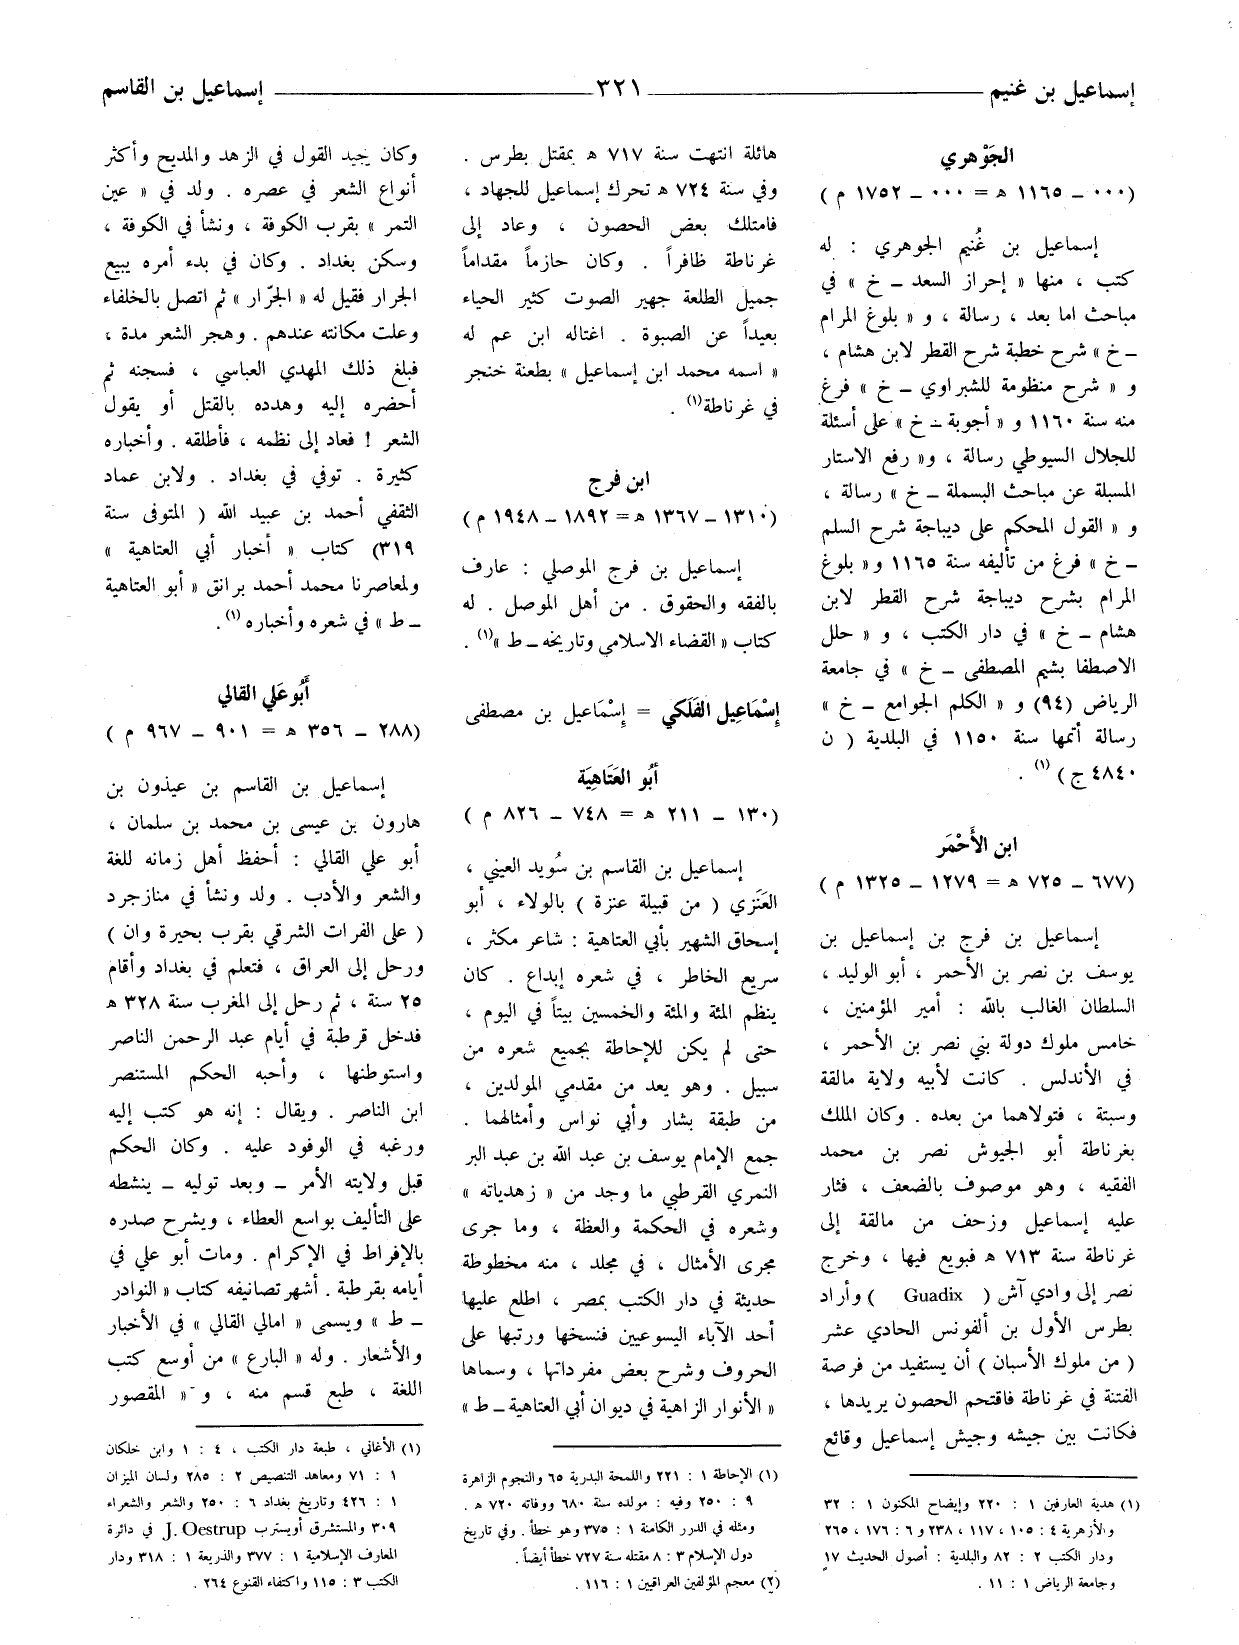 إسماعيل بن غنيم ٣٢١ إسماعيل بن القاسم
الجَوْهري
(٠٠٠ ــ ١١٦٥ هـ = ٠٠٠ ــ ١٧٥٢ م)
إسماعيل بن غُنيم الجوهري : له
كتب ، منها « إحراز السعد ــ خ » في
مباحث اما بعد ، رسالة ، و « بلوغ المرام
ــ خ » شرح خطبة شرح القطر لابن هشام ،
و « شرح منظومة للشبراوي ــ خ » فرغ
منه سنة ١١٦٠ و « أجوبة ــ خ » على أسئلة
للجلال السيوطي رسالة ، و« رفع الاستار
المسبلة عن مباحث البسملة ــ خ » رسالة ،
و « القول المحكم على ديباجة شرح السلم
ــ خ » فرغ من تأليفه سنة ١١٦٥ و« بلوغ
المرام بشرح ديباجة شرح القطر لابن
هشام ــ خ » في دار الكتب ، و « حلل
الاصطفا بشيم المصطفى ــ خ » في جامعة
الرياض (٩٤) و « الكلم الجوامع ــ خ »
رسالة أتمها سنة ١١٥٠ في البلدية ( ن
٤٨٤٠ ج ) (١) .
ابن الأَحْمَر
(٦٧٧ ــ ٧٢٥ هـ = ١٢٧٩ ــ ١٣٢٥ م)
إسماعيل بن فرج بن إسماعيل بن
يوسف بن نصر بن الأحمر ، أبو الوليد ،
السلطان الغالب بالله : أمير المؤمنين ،
خامس ملوك دولة بني نصر بن الأحمر ،
في الأندلس . كانت لأبيه ولاية مالقة
وسبتة ، فتولاهما من بعده . وكان الملك
بغرناطة أبو الجيوش نصر بن محمد
الفقيه ، وهو موصوف بالضعف ، فثار
عليه إسماعيل وزحف من مالقة إلى
غرناطة سنة ٧١٣ هـ فبويع فيها ، وخرج
نصر إلى وادي آش ( Guadix ) وأراد
بطرس الأول بن ألفونس الحادي عشر
( من ملوك الأسبان ) أن يستفيد من فرصة
الفتنة في غرناطة فاقتحم الحصون يريدها ،
فكانت بين جيشه وجيش إسماعيل وقائع
(١) هدية العارفين ١ : ٢٢٠ وإيضاح المكنون ١ : ٣٢
والأزهرية ٤ : ١٠٥ ، ١١٧ ، ٢٣٨ و ٦ : ١٧٦ ، ٢٦٥
ودار الكتب ٢ : ٨٢ والبلدية : أصول الحديث ١٧
وجامعة الرياض ١ : ١١ .
هائلة انتهت سنة ٧١٧ هـ بمقتل بطرس .
وفي سنة ٧٢٤ هـ تحرك إسماعيل للجهاد ،
فامتلك بعض الحصون ، وعاد إلى
غرناطة ظافراً . وكان حازماً مقداماً
جميل الطلعة جهير الصوت كثير الحياء
بعيداً عن الصبوة . اغتاله ابن عم له
« اسمه محمد ابن إسماعيل » بطعنة خنجر
في غرناطة(١) .
ابن فرج
(١٣١٠ ــ ١٣٦٧ هـ = ١٨٩٢ ــ ١٩٤٨ م)
إسماعيل بن فرج الموصلي : عارف
بالفقه والحقوق . من أهل الموصل . له
كتاب « القضاء الاسلامي وتاريخه ــ ط »(١) .
إسْمَاعِيل الفَلَكي = إسْمَاعيل بن مصطفى
أبُو العَتَاهِيَة
(١٣٠ ــ ٢١١ هـ = ٧٤٨ ــ ٨٢٦ م)
إسماعيل بن القاسم بن سُويد العيني ،
العَنَزي ( من قبيلة عنزة ) بالولاء ، أبو
إسحاق الشهير بأبي العتاهية : شاعر مكثر ،
سريع الخاطر ، في شعره إبداع . كان
ينظم المئة والمئة والخمسين بيتاً في اليوم ،
حتى لم يكن للإحاطة بجميع شعره من
سبيل . وهو يعد من مقدمي المولدين ،
من طبقة بشار وأبي نواس وأمثالهما .
جمع الإمام يوسف بن عبد الله بن عبد البر
النمري القرطبي ما وجد من « زهدياته »
وشعره في الحكمة والعظة ، وما جرى
مجرى الأمثال ، في مجلد ، منه مخطوطة
حديثة في دار الكتب بمصر ، اطلع عليها
أحد الآباء اليسوعيين فنسخها ورتبها على
الحروف وشرح بعض مفرداتها ، وسماها
« الأنوار الزاهية في ديوان أبي العتاهية ــ ط »
(١) الإحاطة ١ : ٢٢١ واللمحة البدرية ٦٥ والنجوم الزاهرة
٩ : ٢٥٠ وفيه : مولده سنة ٦٨٠ ووفاته ٧٢٠ هـ .
ومثله في الدرر الكامنة ١ : ٣٧٥ وهو خطأ . وفي تاريخ
دول الإسلام ٣ : ٨ مقتله سنة ٧٢٧ خطأ أيضاً .
(٢) معجم المؤلفين العراقيين ١ : ١١٦ .
وكان يجيد القول في الزهد والمديح وأكثر
أنواع الشعر في عصره . ولد في « عين
التمر » بقرب الكوفة ، ونشأ في الكوفة ،
وسكن بغداد . وكان في بدء أمره يبيع
الجرار فقيل له « الجرّار » ثم اتصل بالخلفاء
وعلت مكانته عندهم . وهجر الشعر مدة ،
فبلغ ذلك المهدي العباسي ، فسجنه ثم
أحضره إليه وهدده بالقتل أو يقول
الشعر ! فعاد إلى نظمه ، فأطلقه . وأخباره
كثيرة . توفي في بغداد . ولابن عماد
الثقفي أحمد بن عبيد الله ( المتوفى سنة
٣١٩) كتاب « أخبار أبي العتاهية »
ولمعاصرنا محمد أحمد برانق « أبو العتاهية
ــ ط » في شعره وأخباره (١) .
أَبُو عَلي القالي
(٢٨٨ ــ ٣٥٦ هـ = ٩٠١ ــ ٩٦٧ م )
إسماعيل بن القاسم بن عيذون بن
هارون بن عيسى بن محمد بن سلمان ،
أبو علي القالي : أحفظ أهل زمانه للغة
والشعر والأدب . ولد ونشأ في منازجرد
( على الفرات الشرقي بقرب بحيرة وان )
ورحل إلى العراق ، فتعلم في بغداد وأقام
٢٥ سنة ، ثم رحل إلى المغرب سنة ٣٢٨ هـ
فدخل قرطبة في أيام عبد الرحمن الناصر
واستوطنها ، وأحبه الحكم المستنصر
ابن الناصر . ويقال : إنه هو كتب إليه
ورغبه في الوفود عليه . وكان الحكم
قبل ولايته الأمر ــ وبعد توليه ــ ينشطه
على التأليف بواسع العطاء ، ويشرح صدره
بالإفراط في الإكرام . ومات أبو علي في
أيامه بقرطبة . أشهر تصانيفه كتاب « النوادر
ــ ط » ويسمى « امالي القالي » في الأخبار
والأشعار . وله « البارع » من أوسع كتب
اللغة ، طبع قسم منه ، و « المقصور
(١) الأغاني ، طبعة دار الكتب ، ٤ : ١ وابن خلكان
١ : ٧١ ومعاهد التنصيص ٢ : ٢٨٥ ولسان الميزان
١ : ٤٢٦ وتاريخ بغداد ٦ : ٢٥٠ والشعر والشعراء
٣٠٩ والمستشرق أويسترب J. Oestrup في دائرة
المعارف الإسلامية ١ : ٣٧٧ والذريعة ١ : ٣١٨ ودار
الكتب ٣ : ١١٥ واكتفاء القنوع ٢٦٤ .